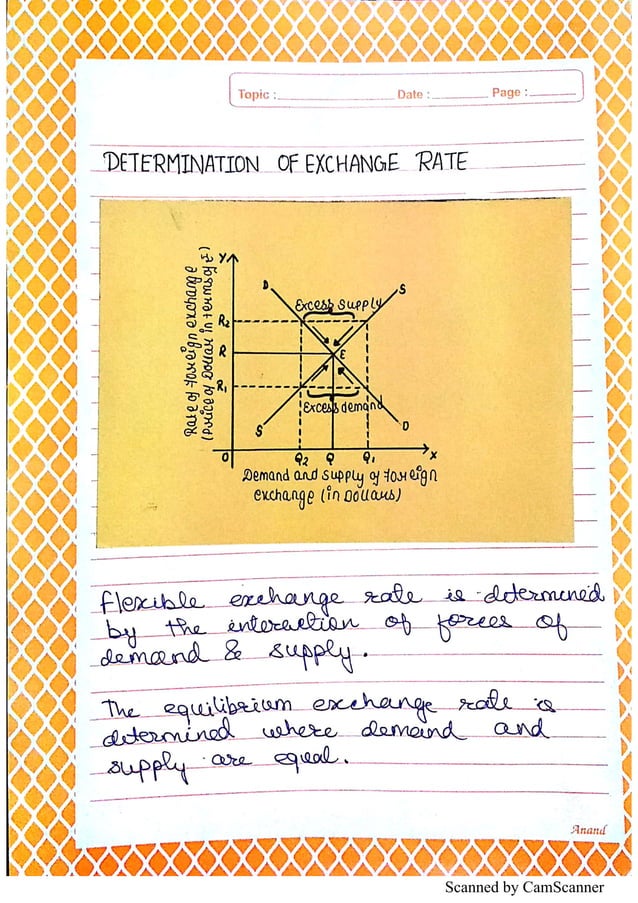 Topic : Date : Page :
DETERMINATION OF EXCHANGE RATE
Rate of foreign exchange
(Price of Dollar in terms of ₹)
Y
D
Excess supply
S
R2
R
E
R1
Excess demand
S
D
O
Q2
Q
Q1
X
Demand and supply of foreign
exchange (in Dollars)
flexible exchange rate is determined
by the interaction of forces of
demand & supply.
The equilibrium exchange rate is
determined where demand and
supply are equal.
Anand
Scanned by CamScanner